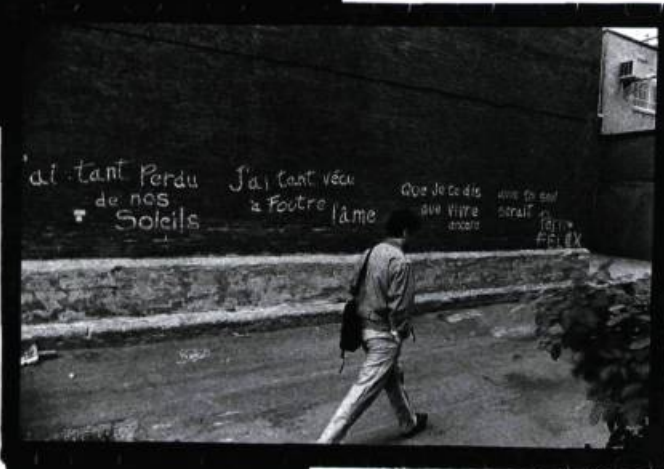 'ai tant Perdu
de nos
Soleils
J'ai tant vécu
à Foutre
l'âme
Que Je te dis
que vivre
encore
serait